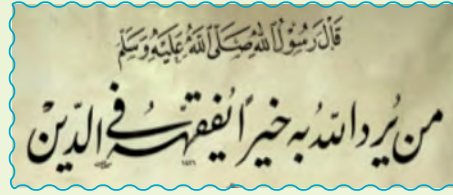 قَالَ رَسُوْلُ اللهِ صَلَّى اللهُ عَلَيْهِ وَسَلَّمَ
من يُرد اللهُ به خيراً يُفقهه في الدّين